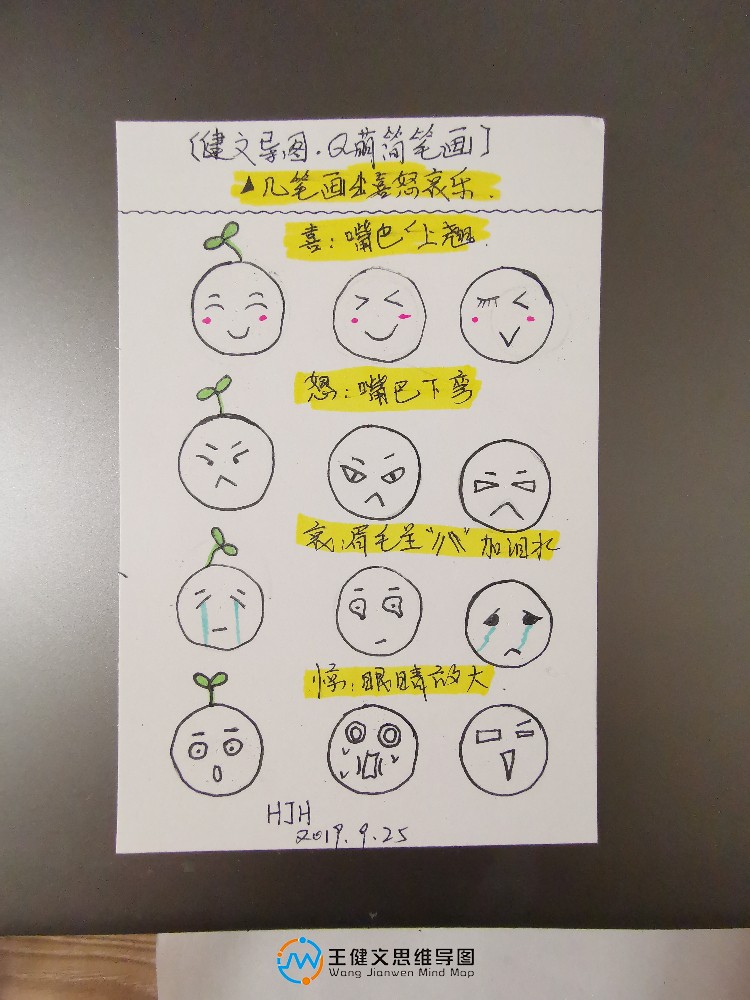 〔健文导图·Q萌简笔画〕
▲几笔画出喜怒哀乐.
喜:嘴巴<上翘.
怒:嘴巴下弯
哀:眉毛呈"八"加泪水
惊:眼睛放大
HJH
2019.9.25
王健文思维导图
Wang Jianwen Mind Map